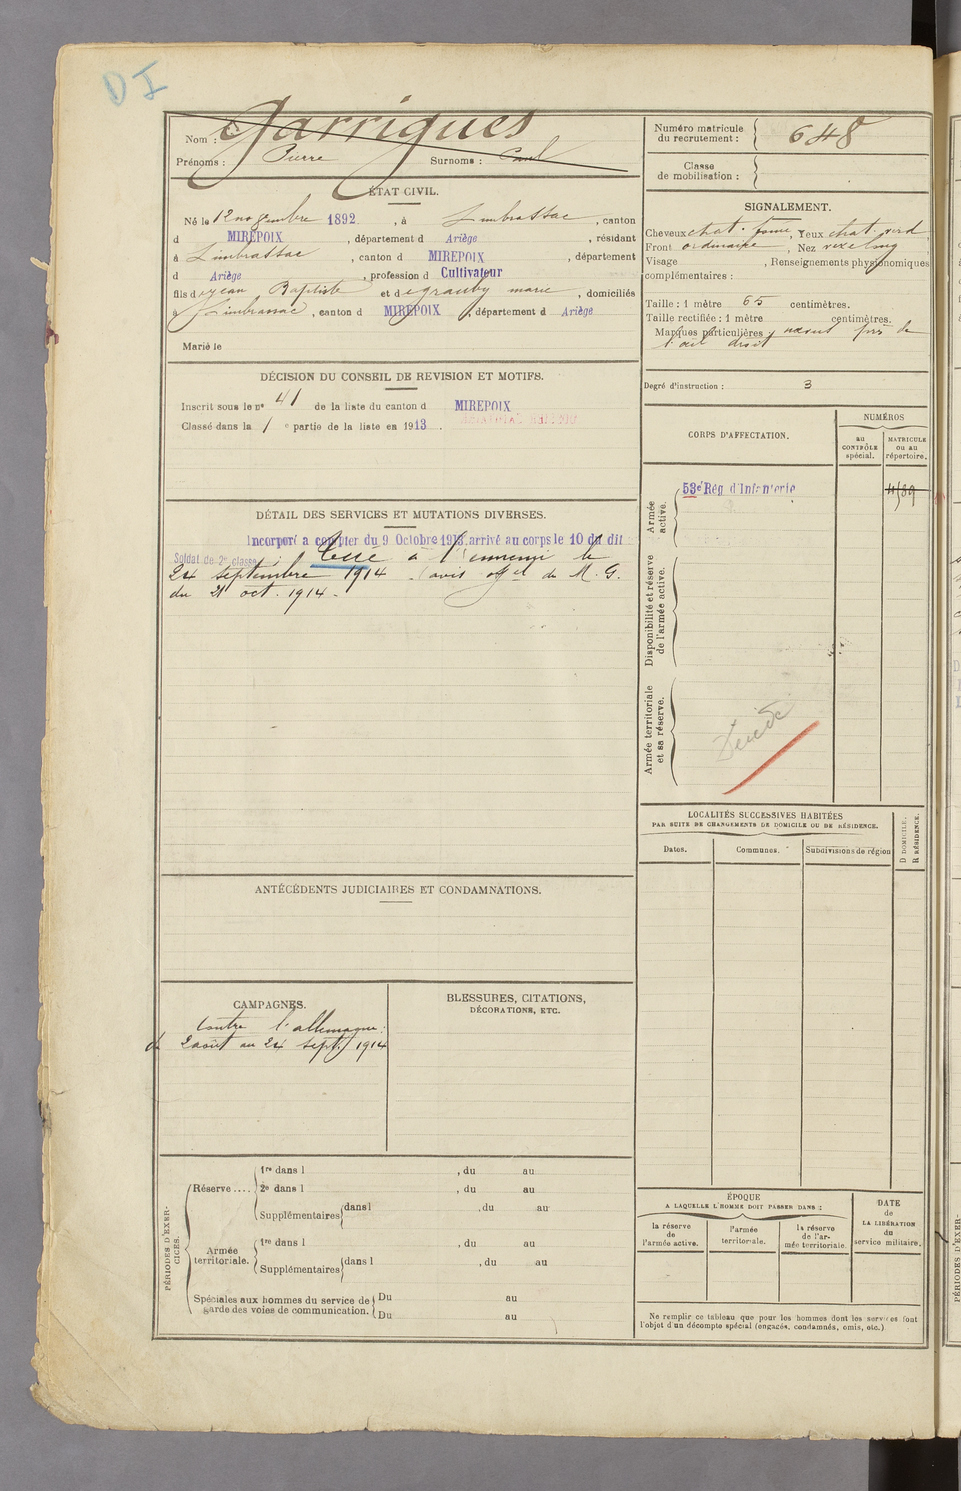 D I
Nom : Garrigues
Prénoms : Pierre Surnoms : Paul
Numéro matricule du recrutement : 648
Classe de mobilisation :
ÉTAT CIVIL.
Né le 12 novembre 1892, à Limbrassac, canton
d MIREPOIX, département d Ariège, résidant
à Limbrassac, canton d MIREPOIX, département
d Ariège, profession d Cultivateur
fils de Jean Baptiste et de marie, domiciliés
à Limbrassac, canton d MIREPOIX, département d Ariège
Marié le
SIGNALEMENT.
Cheveux chat. foncé, Yeux chat. verd
Front ordinaire, Nez long
Visage , Renseignements physionomiques
complémentaires :
Taille : 1 mètre 65 centimètres.
Taille rectifiée : 1 mètre centimètres.
Marques particulières : près de
l'œil droit
Degré d'instruction : 3
DÉCISION DU CONSEIL DE REVISION ET MOTIFS.
Inscrit sous le nº 41 de la liste du canton d MIREPOIX
Classé dans la 1 e partie de la liste en 1913.
CORPS D'AFFECTATION.
NUMÉROS
au CONTRÔLE spécial.
MATRICULE ou au répertoire.
Armée active.
53e Rég d'Infanterie
Disponibilité et réserve de l'armée active.
Armée territoriale et sa réserve.
Décédé
DÉTAIL DES SERVICES ET MUTATIONS DIVERSES.
Incorporé a compter du 9 Octobre 1913 arrivé au corps le 10 du dit
Soldat de 2e classe
tué à l'ennemi le
24 septembre 1914 (avis offel du M. G.
du 21 oct. 1914.
LOCALITÉS SUCCESSIVES HABITÉES
PAR SUITE DE CHANGEMENTS DE DOMICILE OU DE RÉSIDENCE.
Dates.
Communes.
Subdivisions de région
D DOMICILE.
R RÉSIDENCE.
ANTÉCÉDENTS JUDICIAIRES ET CONDAMNATIONS.
CAMPAGNES.
Contre l'allemagne:
du 2 août au 24 sept. 1914
BLESSURES, CITATIONS,
DÉCORATIONS, ETC.
PÉRIODES D'EXERCICES.
Réserve ....
1re dans l , du au
2e dans l , du au
Supplémentaires dans l , du au
Armée territoriale.
1re dans l , du au
Supplémentaires dans l , du au
Spéciales aux hommes du service de garde des voies de communication.
Du au
Du au
ÉPOQUE
A LAQUELLE L'HOMME DOIT PASSER DANS :
la réserve de l'armée active.
l'armée territoriale.
la réserve de l'armée territoriale.
DATE de LA LIBÉRATION du service militaire.
Ne remplir ce tableau que pour les hommes dont les services font
l'objet d'un décompte spécial (engagés, condamnés, omis, etc.)